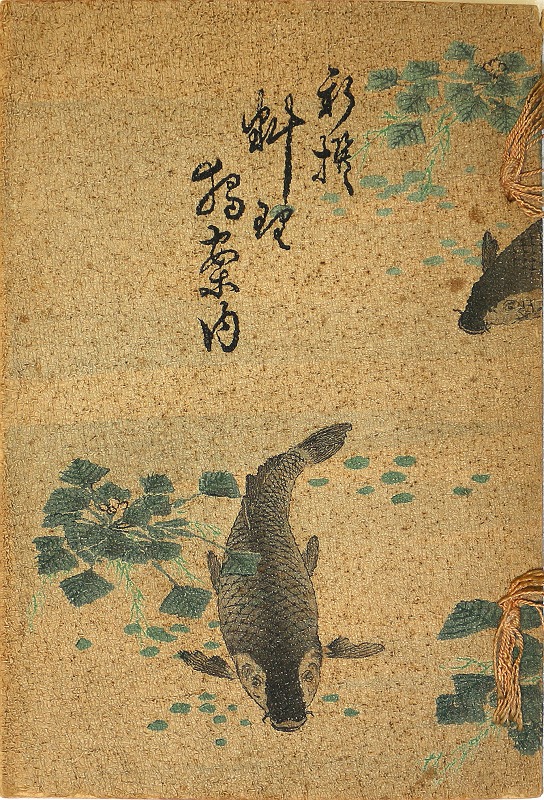 新撰
料理
独案内